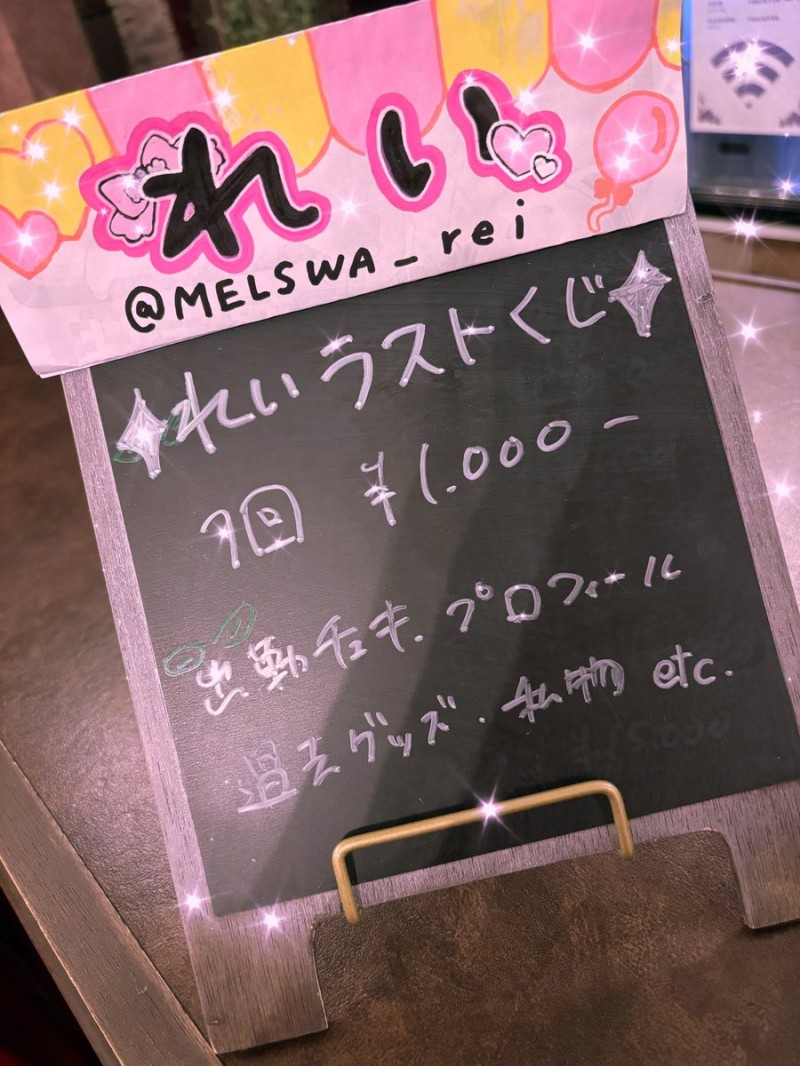 れい
@MELSWA_rei
れいラストくじ
1回 ¥1.000-
出勤チェキ.プロフィール
過去グッズ.私物 etc.